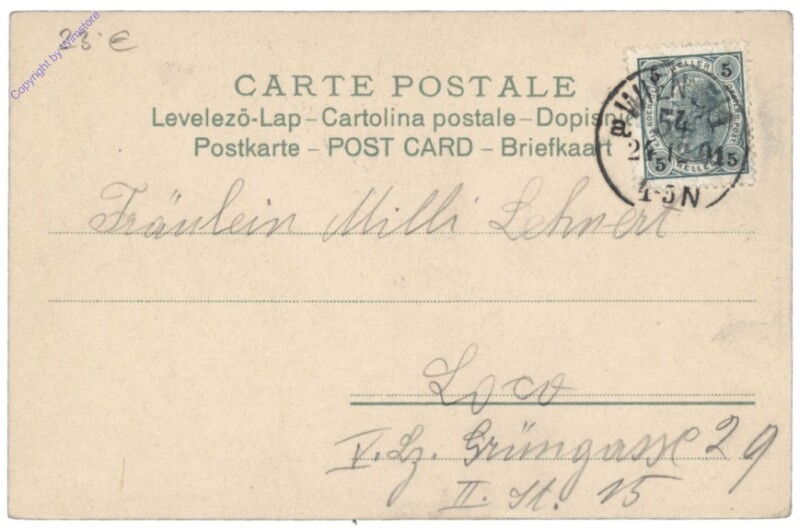 23.€
Copyright by wrim.store
CARTE POSTALE
Levelezō-Lap – Cartolina postale – Dopisni
Postkarte – POST CARD – Briefkaart
5 HELLER 5
WIEN
54
1-5N
5 HELLER 5
Fräulein Milli Lehnert
Loco
V. Lz. Grüngasse 29
II. St. 15